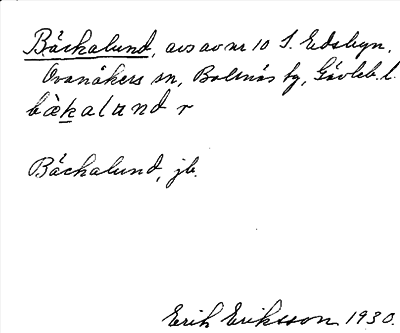 Bäckalund, avs av nr 10 S. Edsbyn,
Ovanåkers sn, Bollnäs tg, Gävleb. l.
bàkalund r
Bäckalund, jb.
Erik Eriksson 1930.